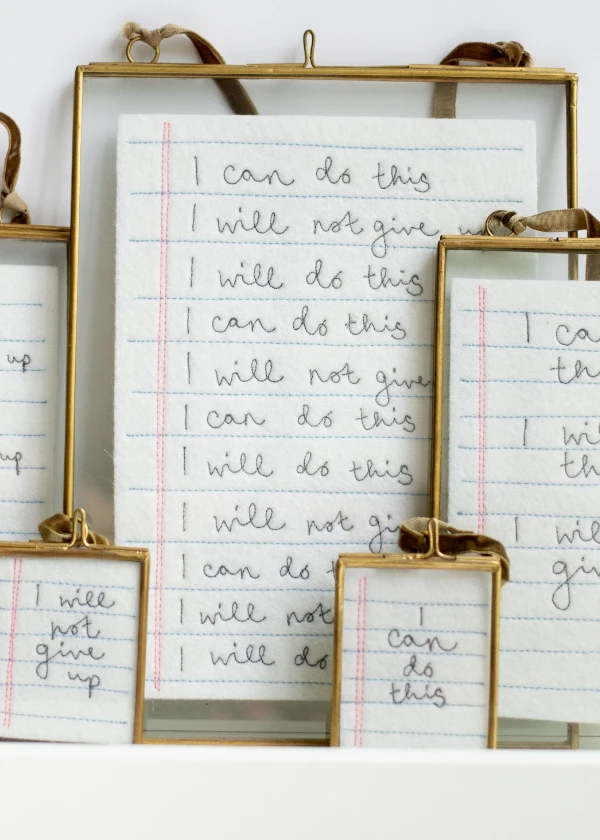 I can do this
I will not give
I will do this
I can do this
I will not give
I can do this
I will do this
I will not
I can do
I will not
I will do
up
up
I
I will
I
I will
not
give
up
I
can
do
this